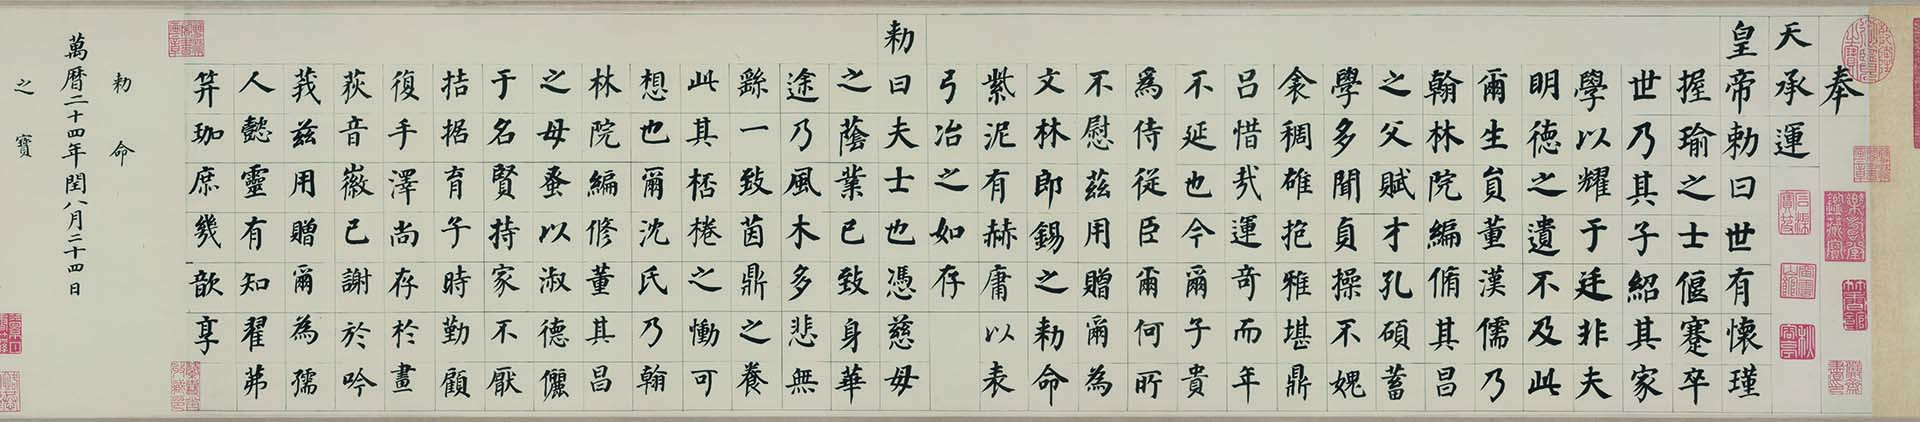 奉
天承運
皇帝勅曰世有懷瑾
握瑜之士偃蹇卒
世乃其子紹其家
學以耀于廷非夫
明德之遺不及此
爾生員董漢儒乃
翰林院編脩其昌
之父賦才孔碩蓄
學多聞貞操不媿
衾稠碓抱雅堪鼎
呂惜㢤運奇而年
不延也今爾子貴
爲侍從臣爾何所
不慰茲用贈爾為
文林郎錫之勅命
紫泥有赫庸以表
弓冶之如存
勅
曰夫士也憑慈母
之蔭業已致身華
途乃風木多悲無
繇一致茵鼎之養
此其桮棬之慟可
想也爾沈氏乃翰
林院編修董其昌
之母蚤以淑德儷
于名賢持家不厭
拮据育子時勤顧
復手澤尚存於畫
荻音徽已謝於吟
莪茲用贈爾為孺
人懿靈有知翟茀
笄珈庶幾歆享
勅命
萬曆二十四年閏八月二十四日
之寶